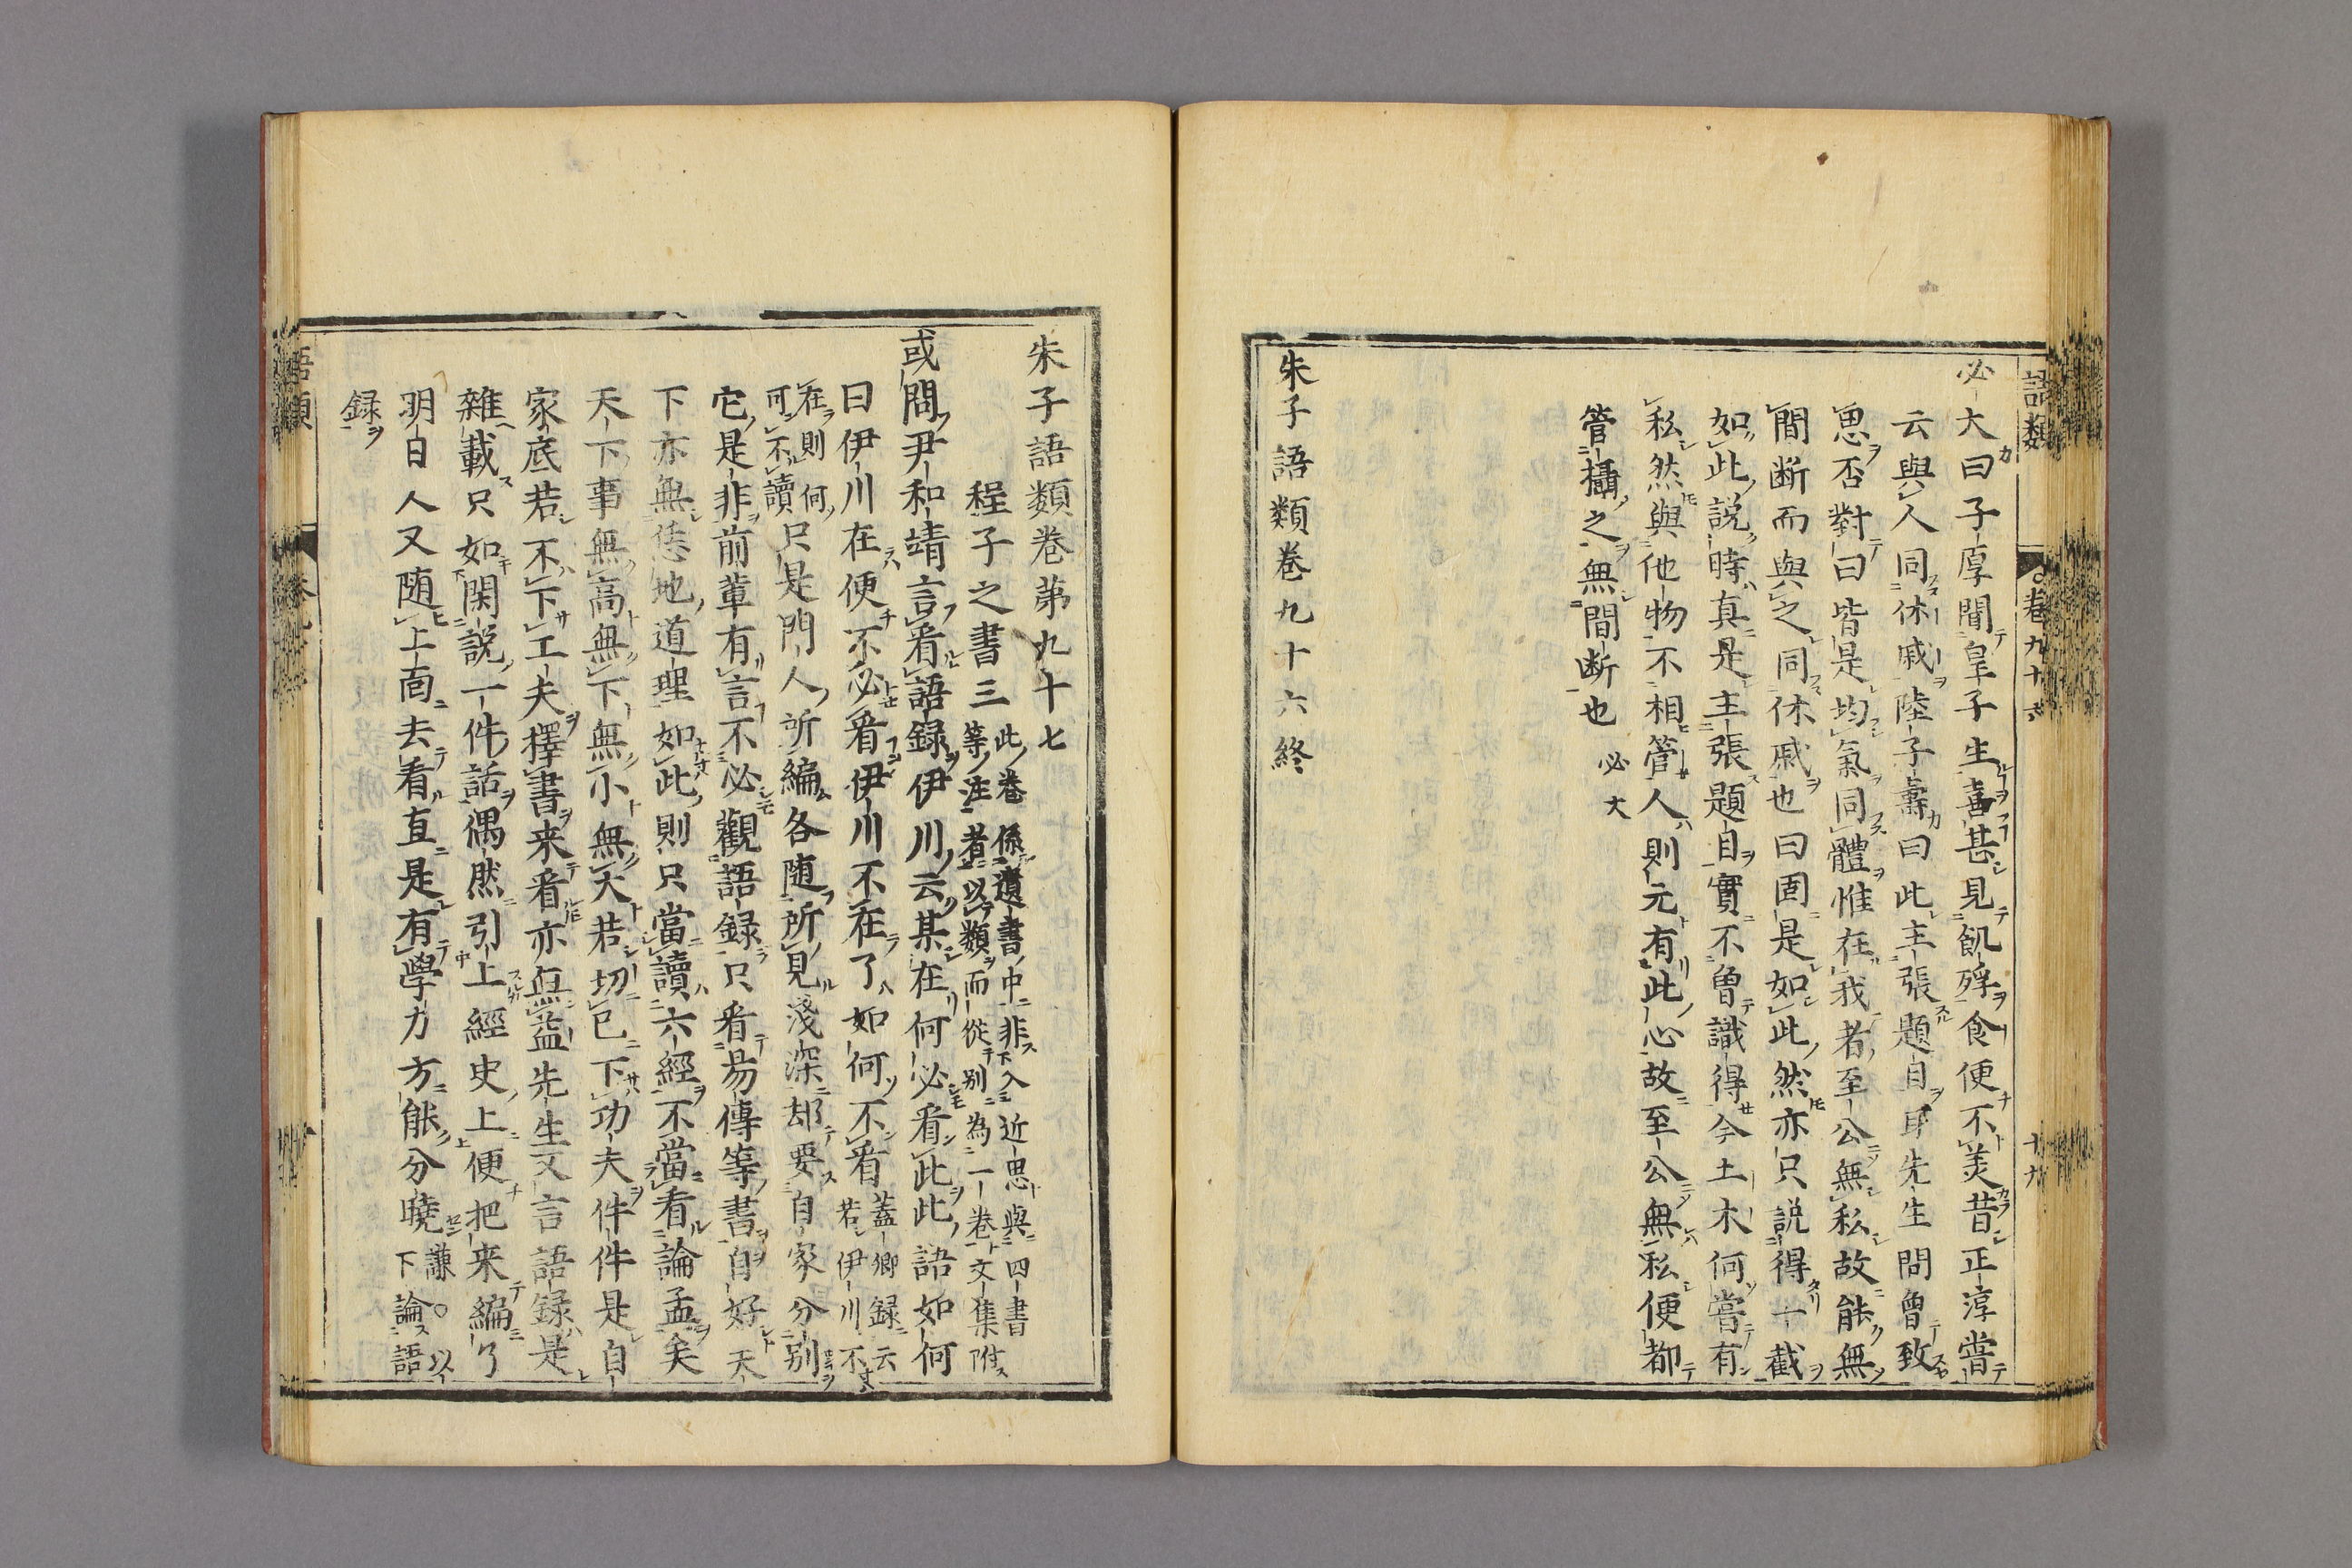 語類
卷九十六
十九
必大曰子厚聞皇子生喜甚見飢殍食便不美昔正淳嘗
云與人同休戚陸子壽曰此主張題目耳先生問曾致
思否對曰皆是均氣同體惟在我者至公無私故能無
間断而與之同休戚也曰固是如此然亦只説得一截
如此説時真是主張題目實不曾識得今土木何嘗有
私然與他物不相管人則元有此心故至公無私便都
管攝之無間断也必大
朱子語類卷九十六終
朱子語類卷苐九十七
程子之書三
此卷係遺書中非入近思與四書
等注者以類而從别為一卷文集附
或問尹和靖言看語録伊川云某在何必看此此語如何
曰伊川在便不必看伊川不在了如何不看
蓋卿録云
若伊川不
在則何
可不讀
只是門人所編各随所見淺深却要自家分别
它是非前輩有言不必觀語録只看昜傳等書自好天
下亦無恁地道理如此則只當讀六經不當看論孟矣
天下事無高無下無小無大若切己下功夫件件是自
家底若不下工夫擇書来看亦無益先生又言語録是
雜載只如閑説一件話偶然引上經史上便把来編了
明白人又随上面去看直是有學力方能分曉
謙○以
下論語
録
語類